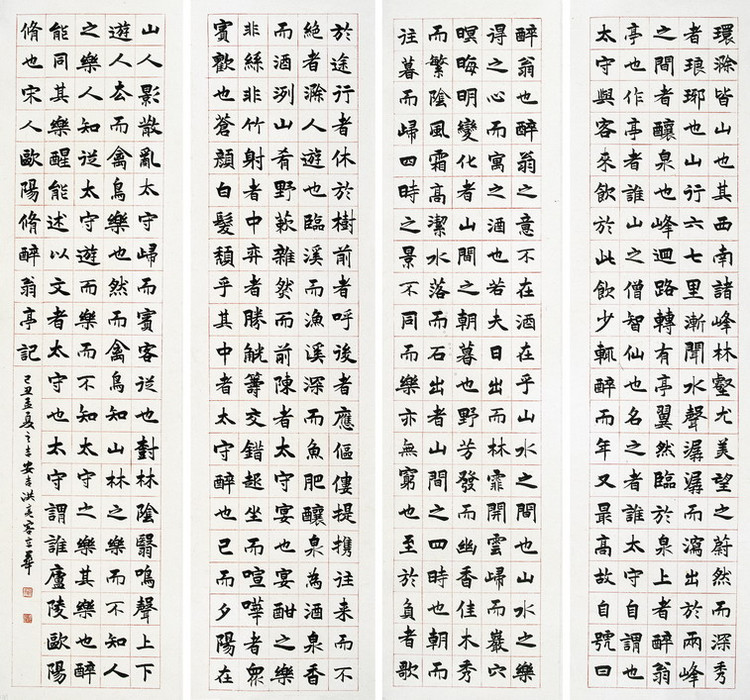 環滁皆山也其西南諸峰林壑尤美望之蔚然而深秀
者琅琊也山行六七里漸聞水聲潺潺而瀉出於兩峰
之間者釀泉也峰迴路轉有亭翼然臨於泉上者醉翁
亭也作亭者誰山之僧智仙也名之者誰太守自謂也
太守與客來飲於此飲少輒醉而年又最高故自號曰
醉翁也醉翁之意不在酒在乎山水之間也山水之樂
得之心而寓之酒也若夫日出而林霏開雲歸而巖穴
暝晦明變化者山間之朝暮也野芳發而幽香佳木秀
而繁陰風霜高潔水落而石出者山間之四時也朝而
往暮而歸四時之景不同而樂亦無窮也至於負者歌
於途行者休於樹前者呼後者應傴僂提攜往來而不
絕者滁人遊也臨溪而漁溪深而魚肥釀泉為酒泉香
而酒洌山肴野蔌雜然而前陳者太守宴也宴酣之樂
非絲非竹射者中弈者勝觥籌交錯起坐而喧嘩者眾
賓歡也蒼顏白髮頹乎其中者太守醉也已而夕陽在
山人影散亂太守歸而賓客從也對林陰翳鳴聲上下
遊人去而禽鳥樂也然而禽鳥知山林之樂而不知人
之樂人知從太守遊而樂而不知太守之樂其樂也醉
能同其樂醒能述以文者太守也太守謂誰廬陵歐陽
脩也宋人歐陽脩醉翁亭記
己丑孟夏之吉安吉洪